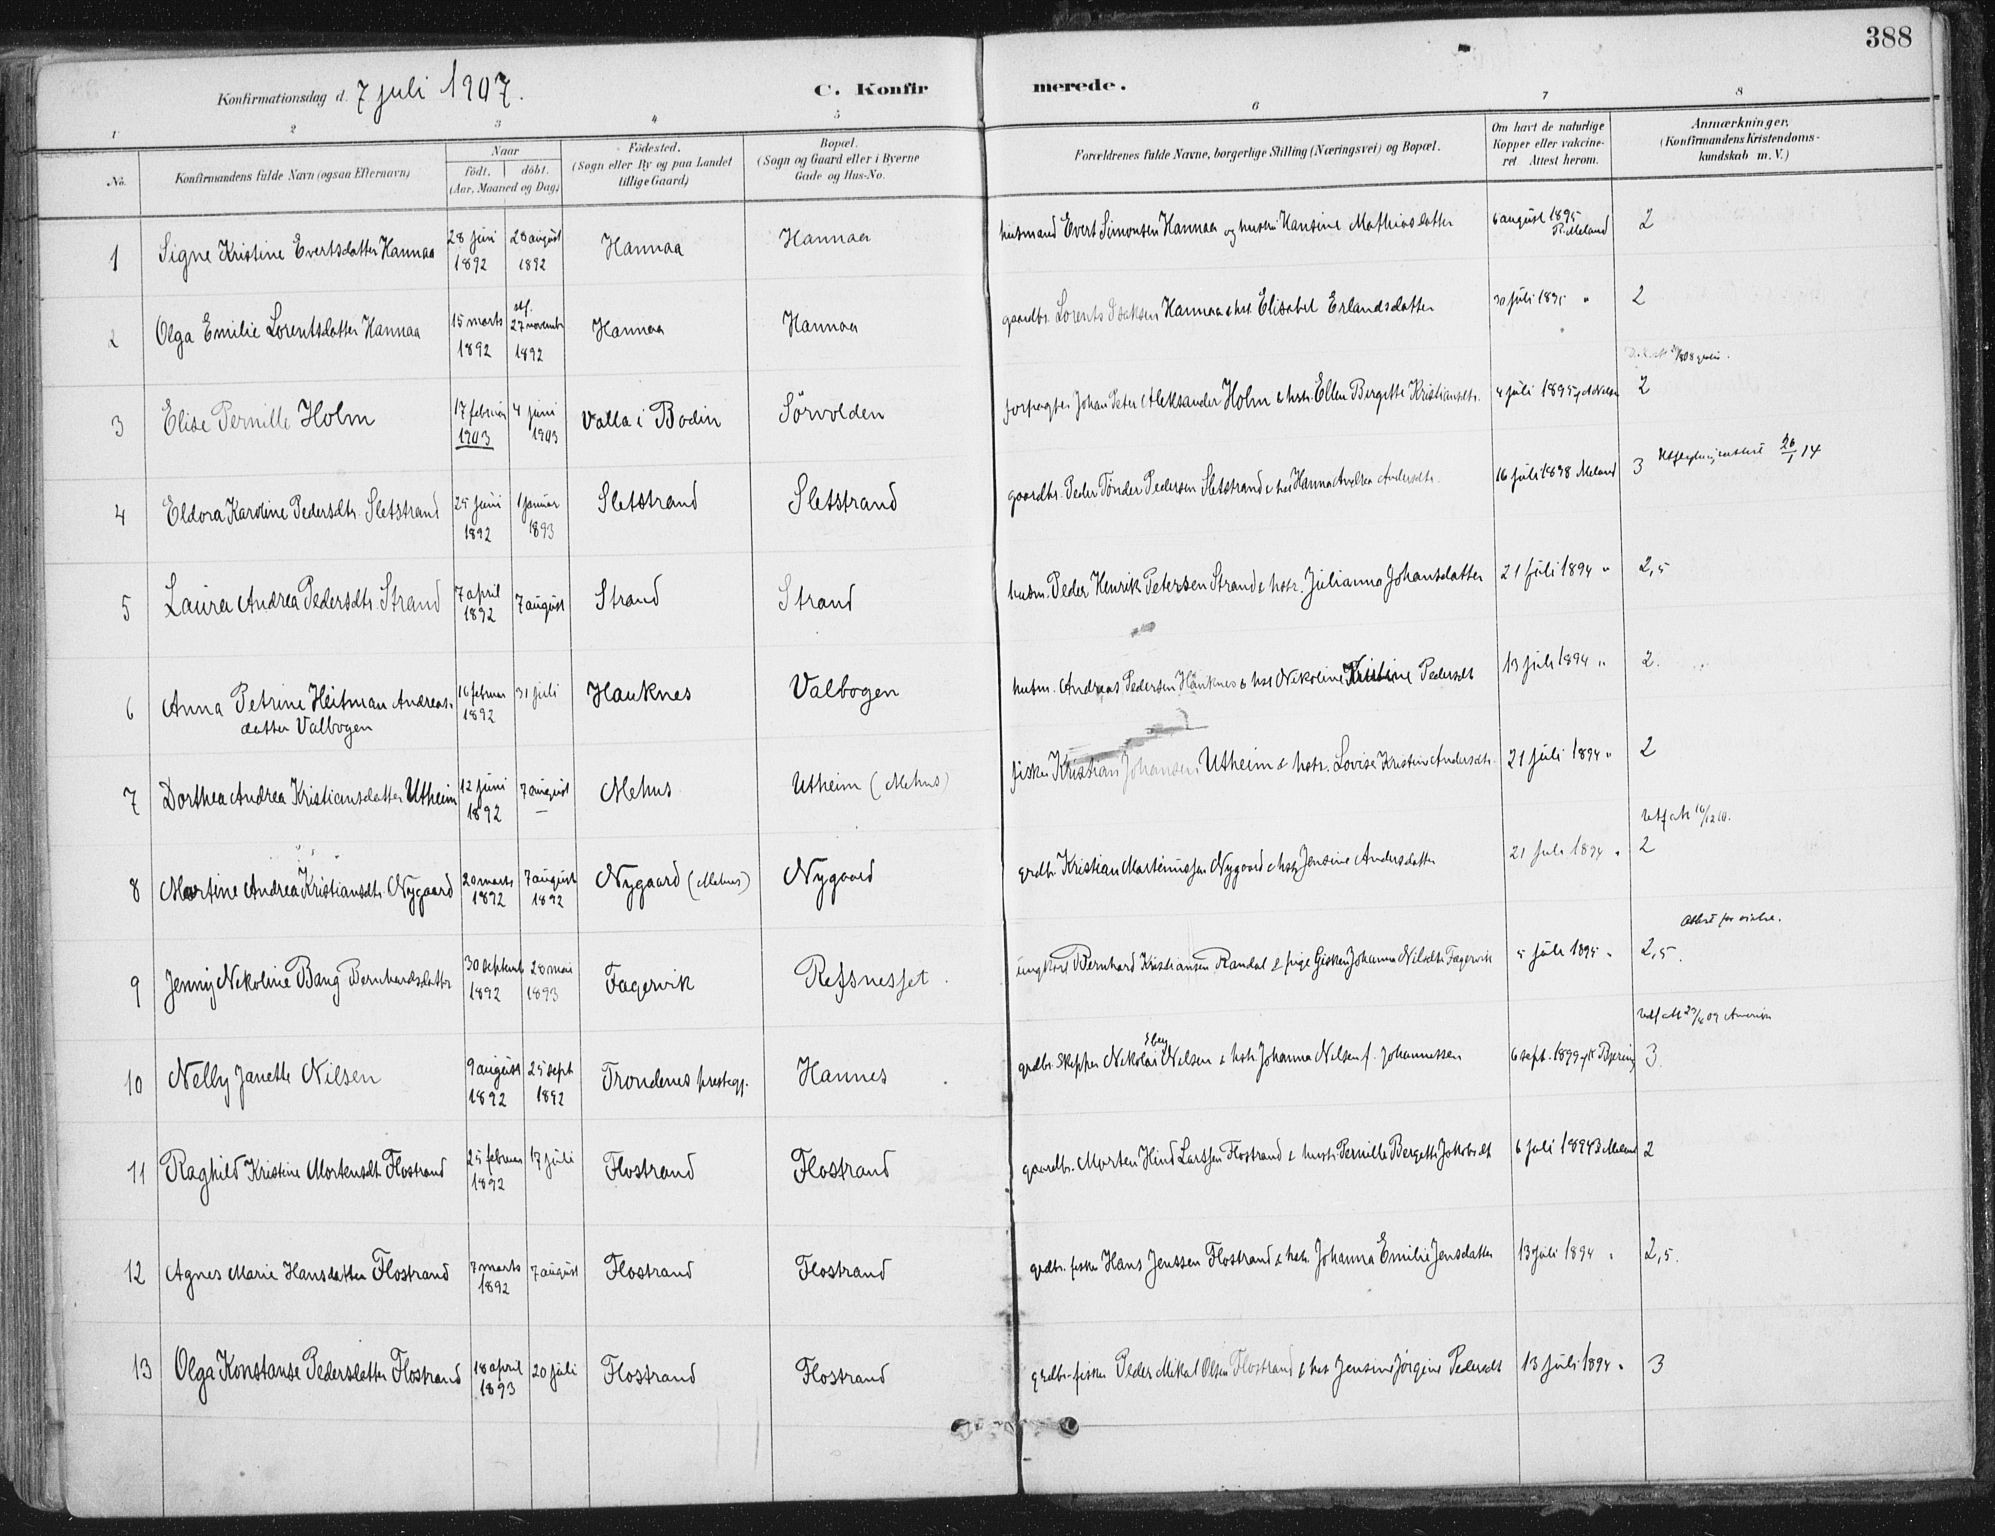 388
Konfirmationsdag d. 7 juli 1907.
C. Konfirmerede.
1 2 3 4 5 6 7 8
No.
Konfirmandens fulde Navn (ogsaa Efternavn)
Naar
födt. döbt.
(Aar, Maaned og Dag)
Födested.
(Sogn eller By og paa Landet
tillige Gaard)
Bopæl.
(Sogn og Gaard eller i Byerne
Gade og Hus-No.
Forældrenes fulde Navne, borgerlige Stilling (Næringsvei) og Bopæl.
Om havt de naturlige
Kopper eller vakcine-
ret. Attest herom.
Anmærkninger.
(Konfirmandens Kristendoms-
kundskab m. V.)
1 Signe Kristine Evertsdatter Hannaa 28 juni 1892 28 august 1892 Hannaa Hannaa husmand Evert Simonsen Hannaa og hustru Hansine Mathiasdatter 6 august 1895 P. Meland 2
2 Olga Emilie Lorentsdatter Hannaa 15 marts 1892 27 novembr 1892 Hannaa Hannaa gaardbr. Lorents Isaksen Hannaa & hst. Elisabet Erlandsdatter 30 juli 1895 " 2
3 Elise Pernille Holm 17 februar 1903 4 juni 1903 Valla i Bodin Sörvolden forpagter Johan Peter Aleksander Holm & hstr. Ellen Bergette Kristiansdtr. 4 juli 1895 2
4 Eldora Karoline Pedersdtr. Sletstrand 25 juni 1892 1 januar 1893 Sletstrand Sletstrand gaardbr. Peder Tönder Pedersen Sletstrand & hst Hanna Andrea Andersdtr. 16 juli 1898 Meland 3 26/1 14
5 Laura Andrea Pedersdtr. Strand 7 april 1892 7 august Strand Strand husm. Peder Henrik Petersen Strand & hstr. Julianna Johansdatter 21 juli 1894 " 2,5
6 Anna Petrine Heitman Andreas-
datter Valbogen 16 februar 1892 31 juli Hauknes Valbogen husm. Andreas Pedersen Hauknes & hst Nikoline Kristine Pedersdt 13 juli 1894 " 2.
7 Dorthea Andrea Kristiansdatter Utheim 12 juni 1892 7 august — Mehus Utheim (Mehus) fisker Kristian Johansen Utheim & hstr. Lovise Kristine Andersdtr. 21 juli 1894 " 2
8 Martine Andrea Kristiansdtr. Nygaard 20 marts 1892 7 august 1892 Nygaard (Mehus) Nygaard grdbr. Kristian Martinussen Nygaard & hstr Jensine Andersdatter 21 juli 1894 " 2
9 Jenny Nekoline Bang Bernhardsdatter 30 septemb 1892 28 mai 1893 Fagervik Refsnesset ungkarl Bernhard Kristiansen Randal & pige Gisken Johanna Nilsdtr Fagervik 5 juli 1895 " 2,5. Attest for vielse.
10 Nelly Janette Nilsen 9 august 1892 25 sept 1892 Trondenes prestegj. Hannes grdbr. skipper Nikolai Ebeg Nilsen & hstr Johanna Nilsen f. Johannessen 6 sept. 1899 3
11 Raghild Kristine Mortensdt. Flostrand 25 februar 1892 17 juli Flostrand Flostrand gaardbr. Morten Hind Larssen Flostrand & hustr. Pernille Bergette Jakobsdt 6 juli 1894 P. Meland 2
12 Agnes Marie Hansdatter Flostrand 7 marts 1892 7 august Flostrand Flostrand grdbr. fisker Hans Jenssen Flostrand & hstr. Johanna Emilie Jensdatter 13 juli 1894 " 2,5.
13 Olga Konstanse Pedersdatter Flostrand 18 april 1893 20 juli Flostrand Flostrand grdbr-fisker Peder Mikal Olsen Flostrand & hst Jensine Jörgine Pedersdt 13 juli 1894 " 3